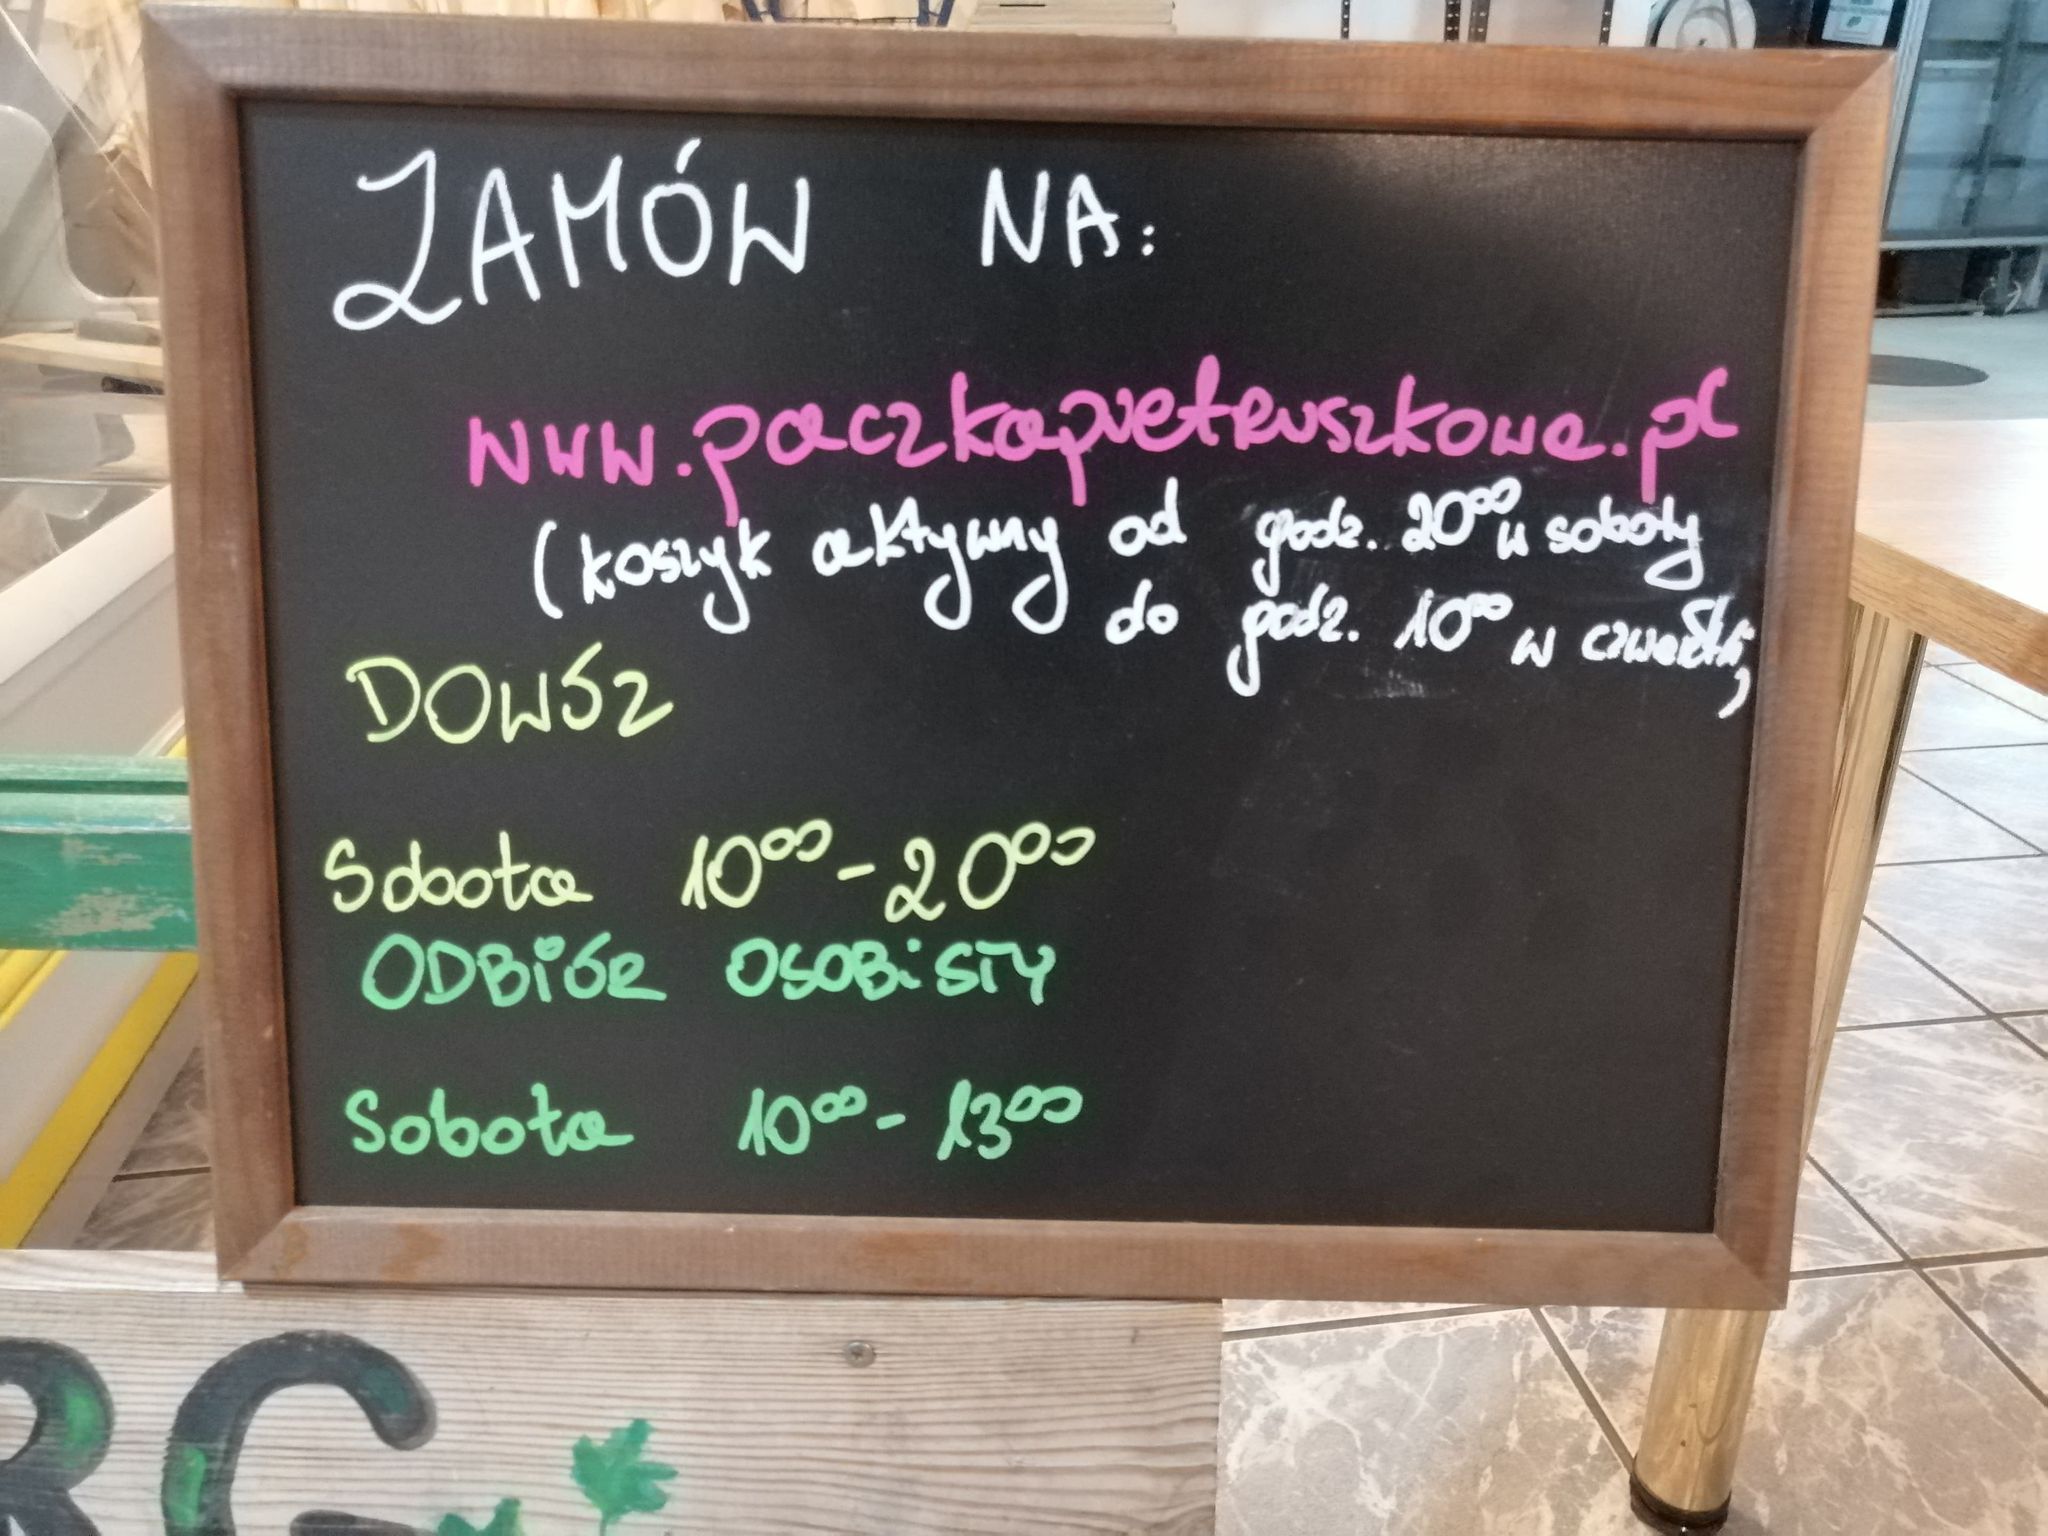 ZAMÓW NA:
www.paczkapietruszkowa.pl
(koszyk aktywny od godz. 20⁰⁰ w soboty
do godz. 10⁰⁰ w czwartki)
DOWÓZ
Sobota 10⁰⁰ - 20⁰⁰
ODBIÓR OSOBISTY
Sobota 10⁰⁰ - 13⁰⁰
RG